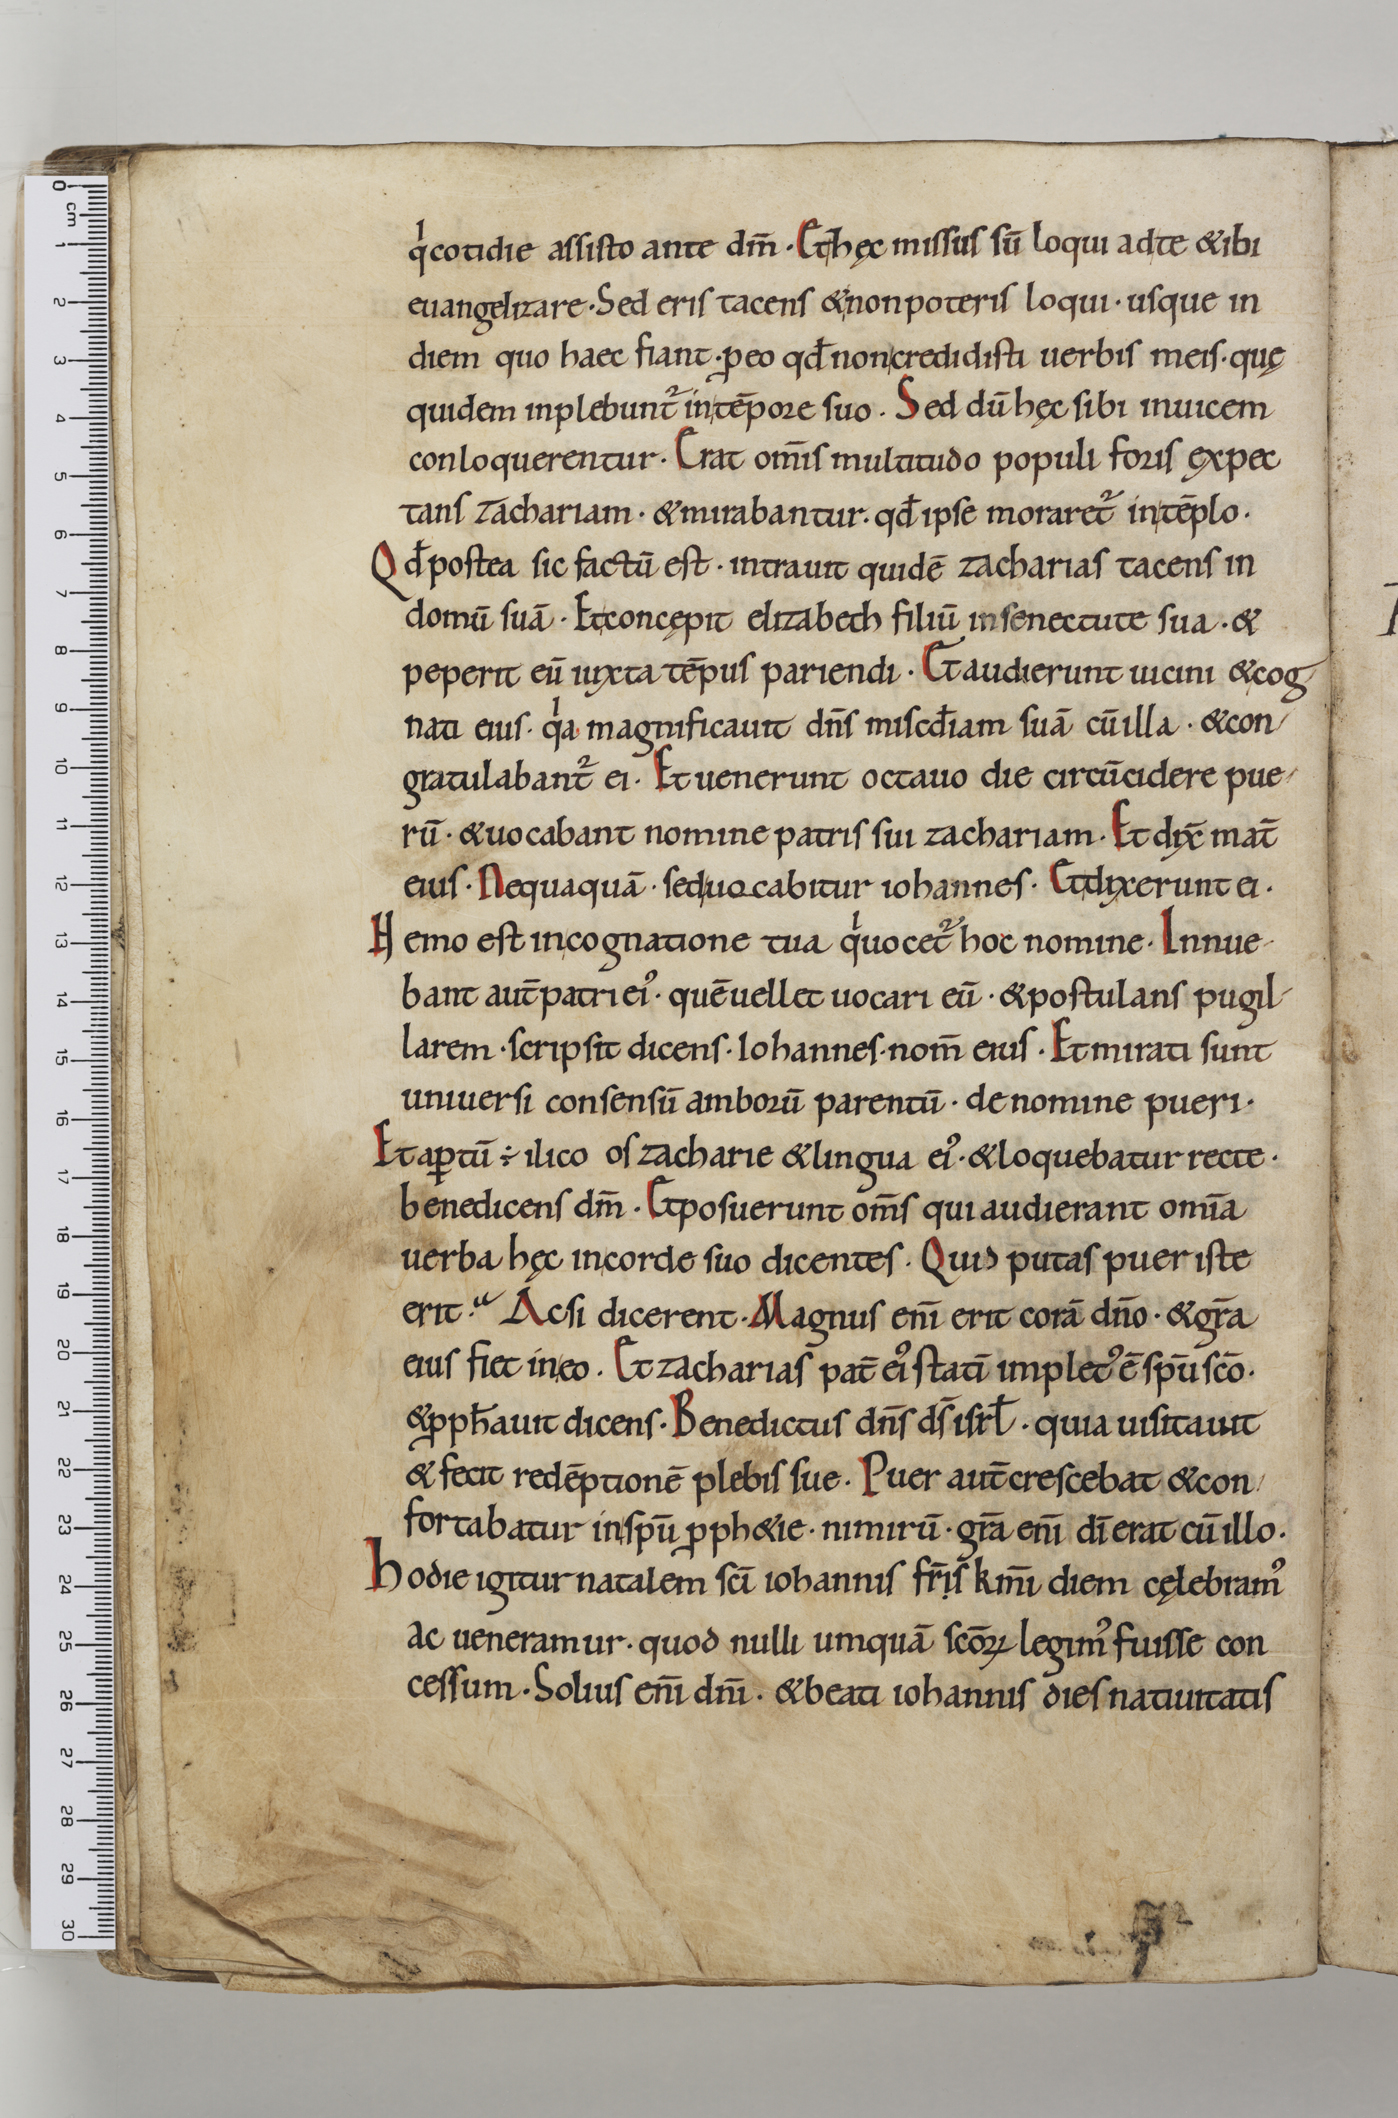 qͥ cotidie assisto ante dm̄ · Et hęc missus sū loqui ad te & ibi
euangelizare · Sed eris tacens & non poteris loqui · usque in
diem quo haec fiant · ꝓ eo qđ non credidisti uerbis meis · quę
quidem inplebunt᷑ in tēpore suo · Sed dū hęc sibi inuicem
conloquerentur · Erat om̄is multitudo populi foris ęxpec
tans zachariam · & mirabantur · qđ ipse moraret᷑ in tēplo ·
Qđ postea sic factū est · intrauit quidē zacharias tacens in
domū suā · Et concępit elizabeth filiū in senectute sua · &
peperit eū iuxta tēpus pariendi · Et audierunt uicini & cog
nati eius · qͥa magnificauit dn̄s misc̄điam suā cū illa · & con
gratulabant᷑ ei · Et uenerunt octauo die circūcidere pue
rū · & uocabant nomine patris sui zachariam · Et dix̄ mat̄
eius · Nequaquā · sed uocabitur iohannes · Et dixerunt ei ·
Nemo est in cognatione tua qͥ uocet᷑ hoc nomine · Innue
bant aut̄ patri ei᾽ · quē uellet uocari eū · & postulans pugil
larem · scripsit dicens · Iohannes · nom̄ eius · Et mirati sunt
uniuersi consensū amborū parentū · de nomine pueri ·
Et aꝑtū ÷ ilico os zacharie & lingua ei᾽ · & loquebatur recte ·
benedicens dm̄ · Et posuerunt om̄s qui audierant om̄ia
uerba hęc in corde suo dicentes · Quid putas puer iste
erit? Ac si dicerent · Magnus eni̅ erit corā dn̄o · & gr̄a
eius fiet in eo · Et zacharias pat̄ ei᾽ stati̅ implet᾽ ē sp̄u sc̄o ·
& ꝓph̄auit dicens · Benedictus dn̄s ds̄ isrł · quia uisitauit
& fecit redēptionē plebis sue · Puer aut̄ crescebat & con
fortabatur in sp̄u ꝓph&ie · nimirū · gr̄a eni̅ di̅ erat cū illo ·
Hodie igitur natalem sc̄i iohannis fr̄is km̄i diem cęlebram᾽
ac ueneramur · quod nulli umquā sc̄oꝝ legim᾽ fuisse con
cessum · Solius eni̅ dn̄i · & beati iohannis dies natiuitatis